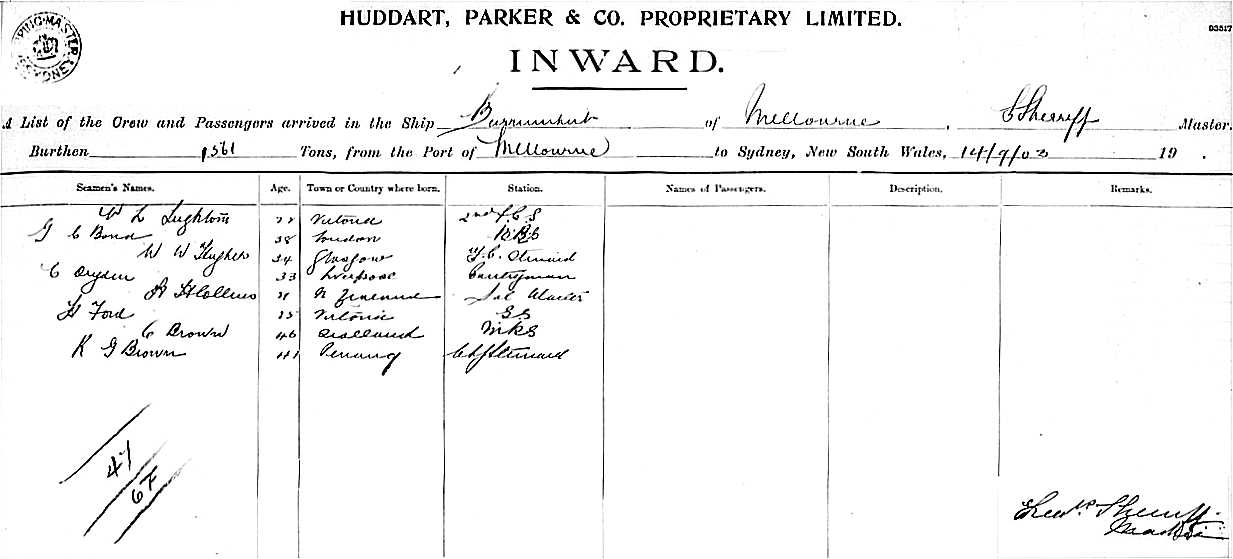 HUDDART, PARKER & CO. PROPRIETARY LIMITED.
03517
INWARD.
A List of the Crew and Passengers arrived in the Ship Burrumbeet of Melbourne, S Sherriff Master.
Burthen 1561 Tons, from the Port of Melbourne to Sydney, New South Wales, 14/9/03 19 .
Seamen's Names. Age. Town or Country where born. Station. Names of Passengers. Description. Remarks.
W L Leightom Victoria 2nd
G C Bond 38 London
W W Hughes 34 Glasgow
C Dryden 33 Liverpool Pantryman
Collins N Zealand Sal Waiter
H Ford Victoria SS
C Brown 46 Scotland MRS
K G Brown 41 Penang Steward
47
67
Sherriff
Master